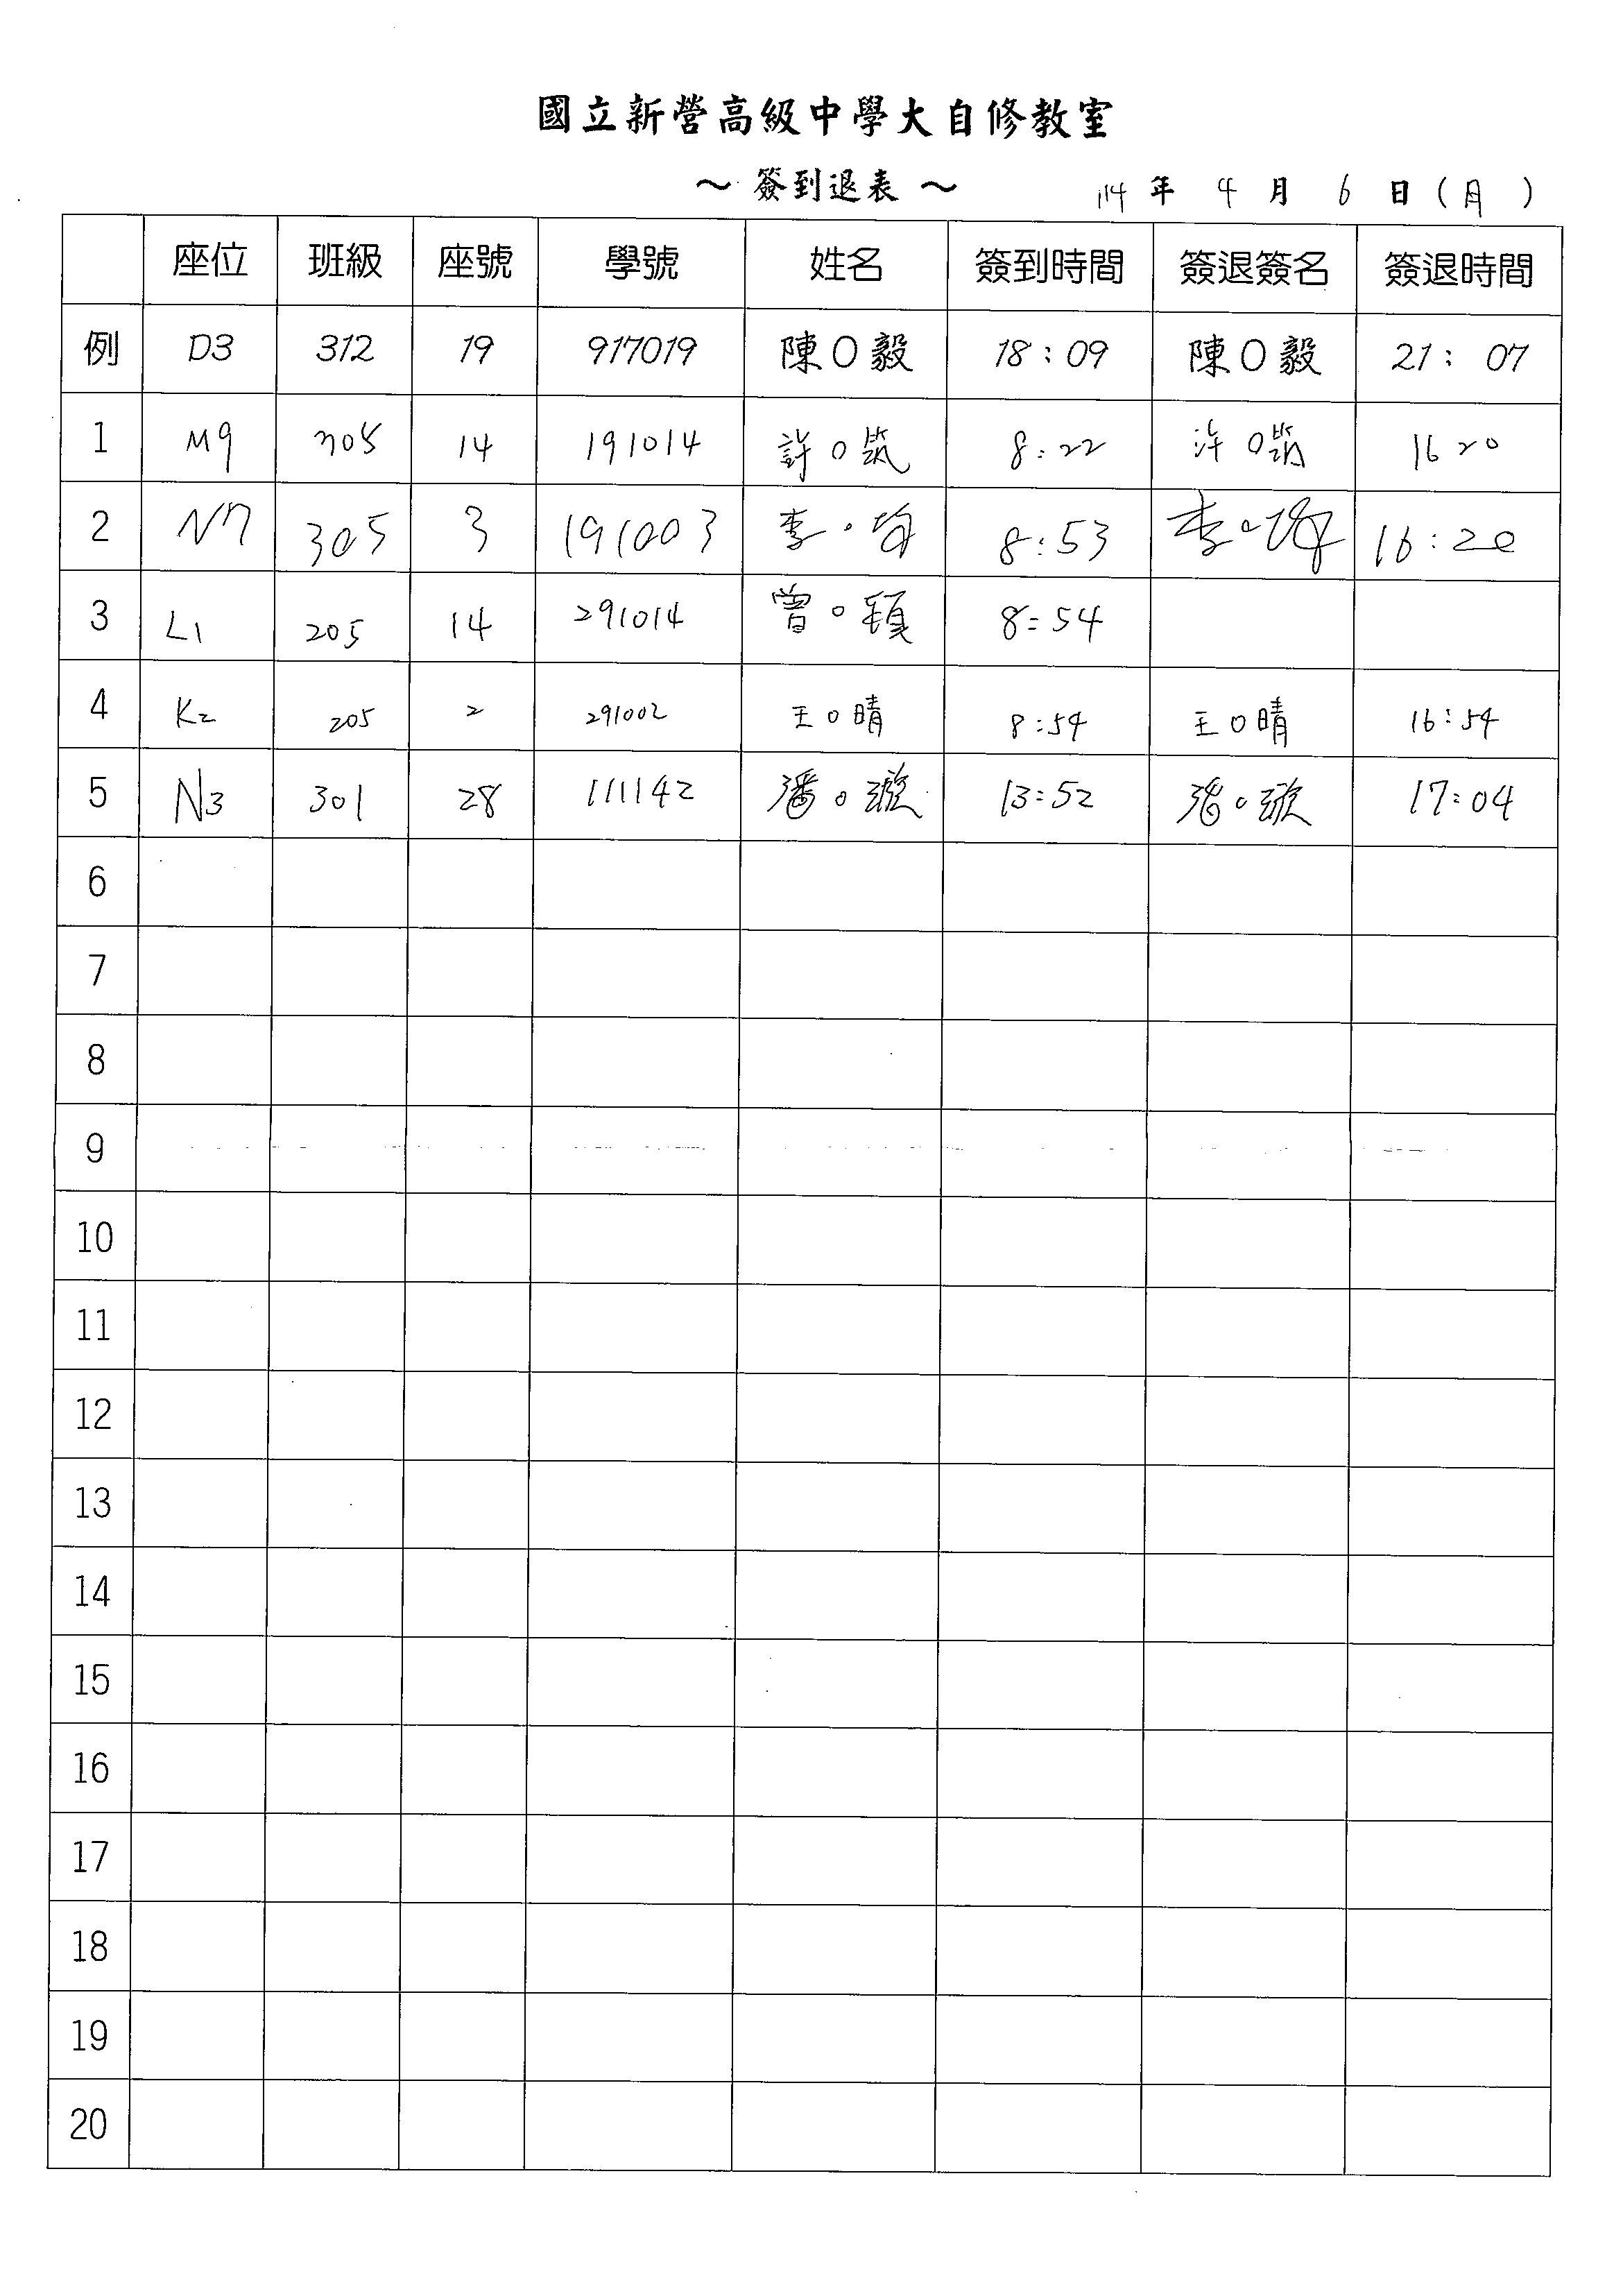 國立新營高級中學大自修教室
～ 簽到退表 ～ 114 年 4 月 6 日 ( 月 )
座位 班級 座號 學號 姓名 簽到時間 簽退簽名 簽退時間
例 D3 312 19 917019 陳O毅 18:09 陳O毅 21:07
1 M9 305 14 191014 許O筑 8:22 許O筑 16 20
2 N7 305 3 191003 李 8:53 李 16:20
3 L1 205 14 291014 曾O穎 8:54
4 K2 205 2 291002 王O晴 8:54 王O晴 16:54
5 N3 301 28 111142 潘O璇 13:52 潘O璇 17:04
6
7
8
9
10
11
12
13
14
15
16
17
18
19
20